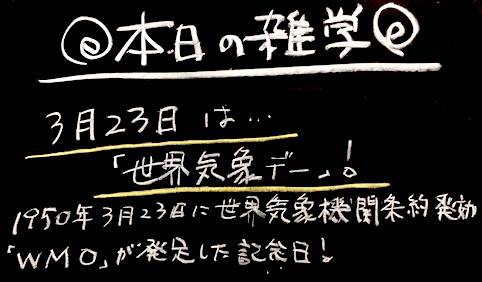 @本日の雑学@
3月23日は…
「世界気象デー」!
1950年3月23日に世界気象機関条約発効
「WMO」が発足した記念日!